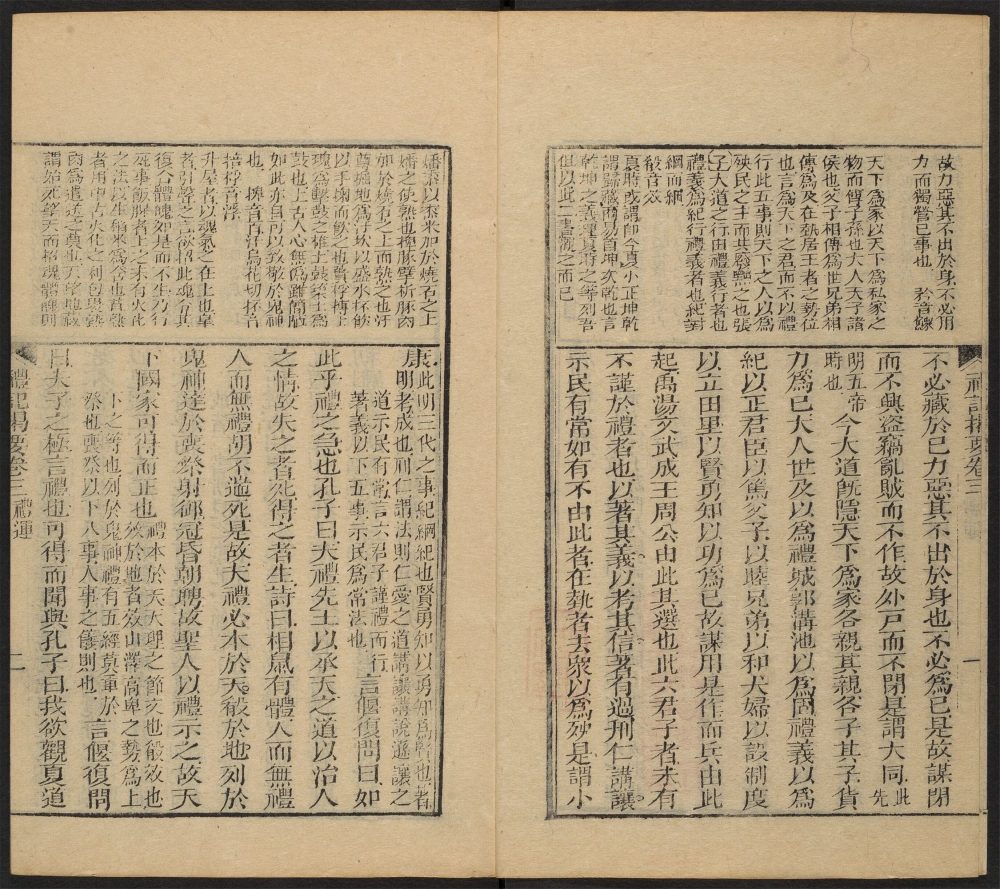 故力惡其不出於身不必用
力而獨營已事也　矜音鰥
天下爲家以天下爲私家之
物而傳子孫也大人天子諸
侯也父子相傳爲世兄弟相
傳爲及在埶居王者之勢位
也言爲天下之君而不以禮
行此五事則天下之人以爲
殃民之主而共廢黜之也張
子大道之行由禮義行者也
禮義爲紀行禮義者也紀對
綱而綱
殽音效
夏時或謂卽今夏小正坤乾
謂歸藏商易首坤次乾也言
乾坤之義理夏時之等列吾
但以此二書觀之而已
禮記揭要卷三
一
不必藏於已力惡其不出於身也不必爲已是故謀閉
而不興盜竊亂賊而不作故外戸而不閉是謂大同此先
明五帝時也今大道旣隱天下爲家各親其親各子其子貨
力爲已大人世及以爲禮城郭溝池以爲固禮義以爲
紀以正君臣以篤父子以睦兄弟以和夫婦以設制度
以立田里以賢勇知以功爲已故謀用是作而兵由此
起禹湯文武成王周公由此其選也此六君子者未有
不謹於禮者也以著其義以考其信著有過刑仁講讓
示民有常如有不由此者在埶者去衆以爲殃是謂小
燔黍以黍米加於燒石之上
燔之使熟也捭豚擘析豚肉
加於燒石之上而熟之也汙
尊掘地爲汙坎以盛水抔飲
以手掬而飲之也蕢桴摶土
塊爲擊鼓之椎土鼓築土爲
鼓也上古人心無僞雖簡陋
如此亦自可以致敬於鬼神
也　捭音百汙烏花切抔音
掊桴音浮
升屋者以魂氣之在上也皐
者引聲之言欲招此魂令其
復合體魄如是而不生乃行
死事飯腥者上古未有火化
之法以生稻米爲含也苴熟
者用中古火化之利包裹熟
肉爲遣送之奠也天望地藏
謂始死望天而招魂體魄則
康此明三代之事紀綱紀也賢勇知以勇知爲賢也著明者成也刑仁謂法則仁愛之道講讓講說遜讓之
道示民有常言六君子謹禮而行著義以下五事示民爲常法也言偃復問曰如
此乎禮之急也孔子曰夫禮先王以承天之道以治人
之情故失之者死得之者生詩曰相鼠有體人而無禮
人而無禮胡不遄死是故夫禮必本於天殽於地列於
鬼神達於喪祭射御冠昏朝聘故聖人以禮示之故天
下國家可得而正也禮本於天天理之節文也殽效也效於地者效山澤高卑之勢爲上
下之等也列於鬼神禮有五經莫重於祭也喪祭以下八事人事之儀則也言偃復問
曰夫子之極言禮也可得而聞與孔子曰我欲觀夏道
禮記揭要卷三禮運
二